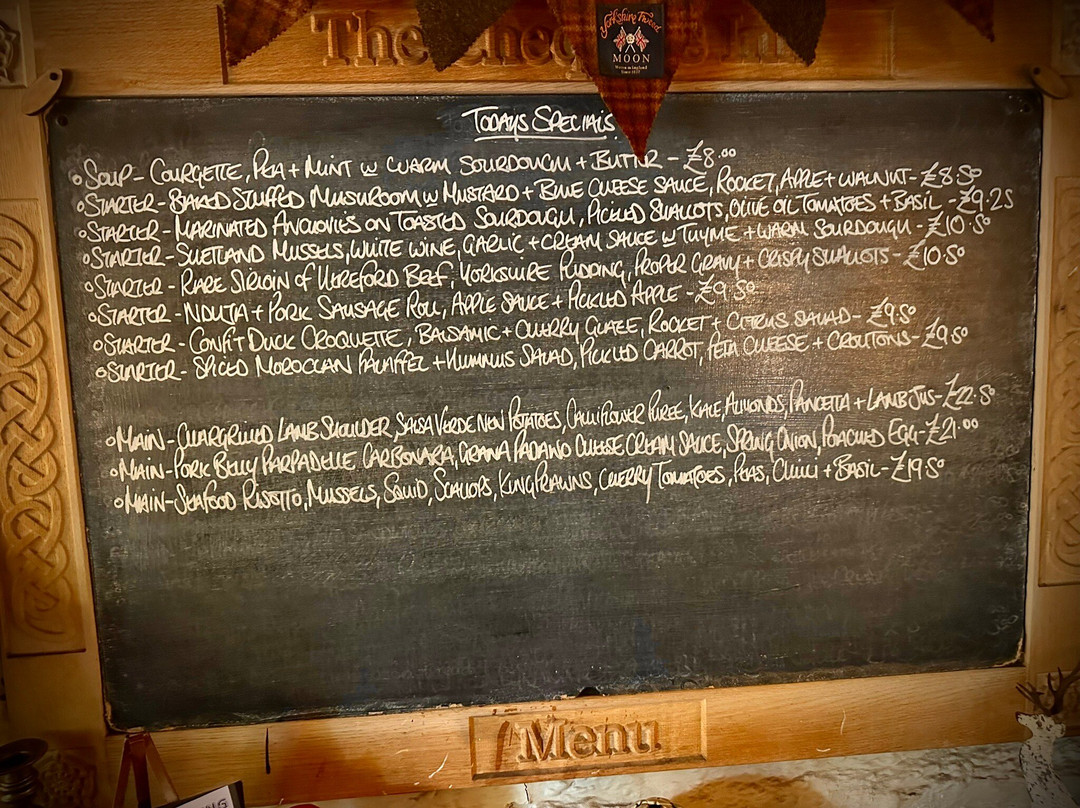 The Chequers Inn
Yorkshire Tweed
MOON
Woven in England
Since 1837
TODAYS SPECIALS
SOUP - COURGETTE, PEA + MINT W WARM SOURDOUGH + BUTTER - £8.00
STARTER - BAKED STUFFED MUSHROOM W MUSTARD + BLUE CHEESE SAUCE, ROCKET, APPLE + WALNUT - £8.50
STARTER - MARINATED ANCHOVIES ON TOASTED SOURDOUGH, PICKLED SHALLOTS, OLIVE OIL TOMATOES + BASIL - £9.25
STARTER - SHETLAND MUSSELS, WHITE WINE, GARLIC + CREAM SAUCE W THYME + WARM SOURDOUGH - £10.50
STARTER - RARE SIRLOIN OF HEREFORD BEEF, YORKSHIRE PUDDING, PROPER GRAVY + CRISPY SHALLOTS - £10.50
STARTER - NDUJA + PORK SAUSAGE ROLL, APPLE SAUCE + PICKLED APPLE - £9.50
STARTER - CONFIT DUCK CROQUETTE, BALSAMIC + CHERRY GLAZE, ROCKET + CITRUS SALAD - £9.50
STARTER - SPICED MOROCCAN FALAFFEL + HUMMUS SALAD, PICKLED CARROT, FETA CHEESE + CROUTONS - £9.50
MAIN - CHARGRILLED LAMB SHOULDER, SALSA VERDE NEW POTATOES, CAULIFLOWER PUREE, KALE, ALMONDS, PANCETTA + LAMB JUS - £22.50
MAIN - PORK BELLY PARPADELLE CARBONARA, GRANA PADANO CHEESE CREAM SAUCE, SPRING ONION, POACHED EGG - £21.00
MAIN - SEAFOOD RISOTTO, MUSSELS, SQUID, SCALLOPS, KING PRAWNS, CHERRY TOMATOES, PEAS, CHILLI + BASIL - £19.50
Menu